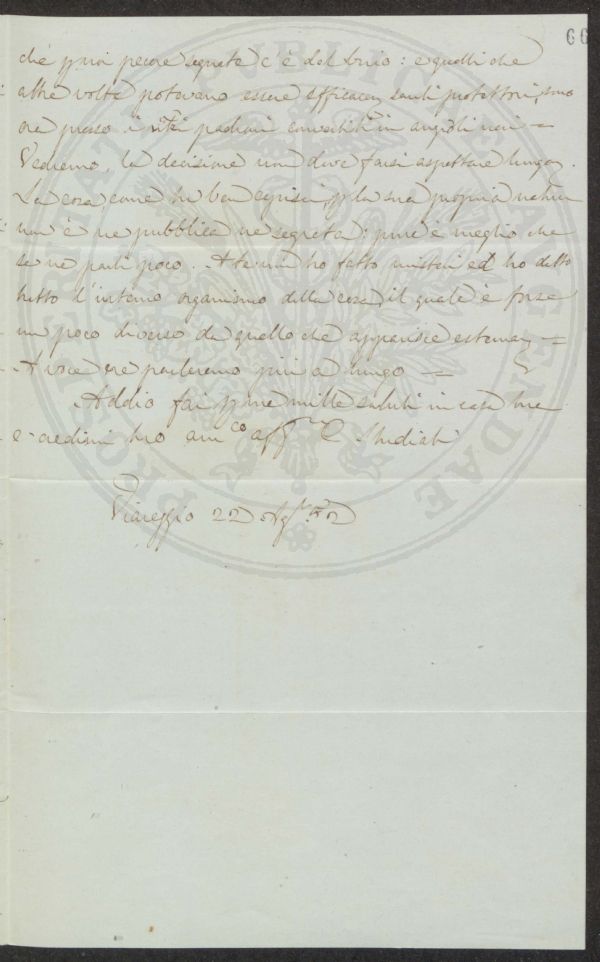 66
chè p. noi pecore segnate c'è del buio: e quelli che
altre volte potevano essere efficaci, santi protettori, sono
ora presso i padroni convertiti in angioli neri =
Vedremo, la decisione non deve farsi aspettare lunga.
La cosa come tu ben capisci, p. la sua propria natura
non è ne pubblica ne segreta: pure è meglio che
se ne parli poco. A te non ho fatto misteri ed ho detto
tutto l'interno organismo della cosa, il quale è forse
un poco diverso da quello che apparisce =
A voce ne parleremo più a lungo =
Addio fai p. me mille saluti in casa tua
e credimi tuo am.co aff. C. Studiati
Viareggio 22 Ag.
PROPERITATI PUBLICAE AUGENDAE